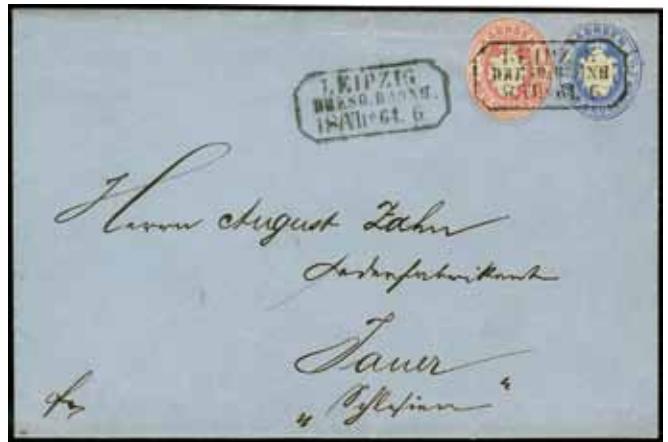 LEIPZIG
DRESD. BAHNH.
18/VII 64. 6
SACHSEN
LEIPZIG
DRESD. BAHNH
18/VII 64. 6
Herrn August Zahn
Lederfabrikant
Jauer
"Schlesien"
fr.